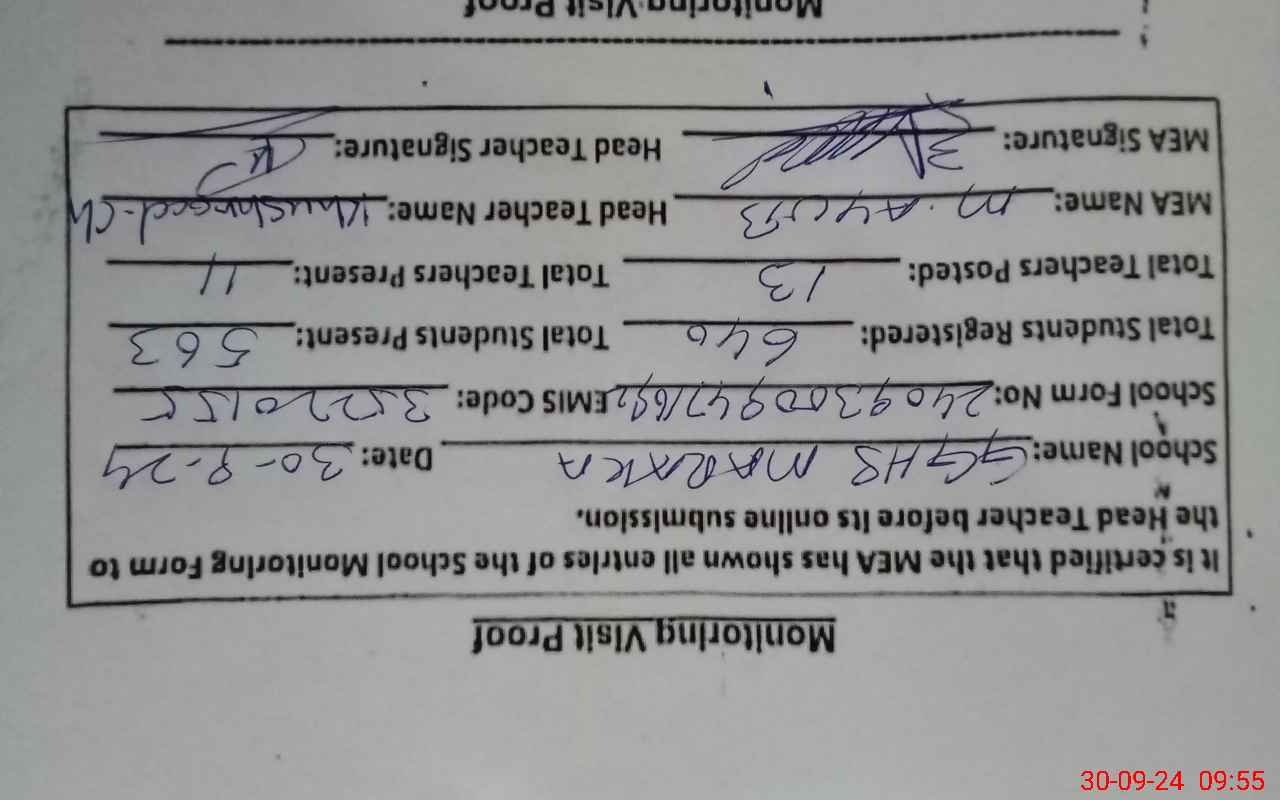 Monitoring Visit Proof
It is certified that the MEA has shown all entries of the School Monitoring Form to
the Head Teacher before its online submission.
School Name: GGHS MARAKA Date: 30-9-24
School Form No: EMIS Code: 35220155
Total Students Registered: 640 Total Students Present: 563
Total Teachers Posted: 13 Total Teachers Present: 11
MEA Name: M. Head Teacher Name:
MEA Signature: Head Teacher Signature:
Monitoring Visit Proof
30-09-24 09:55